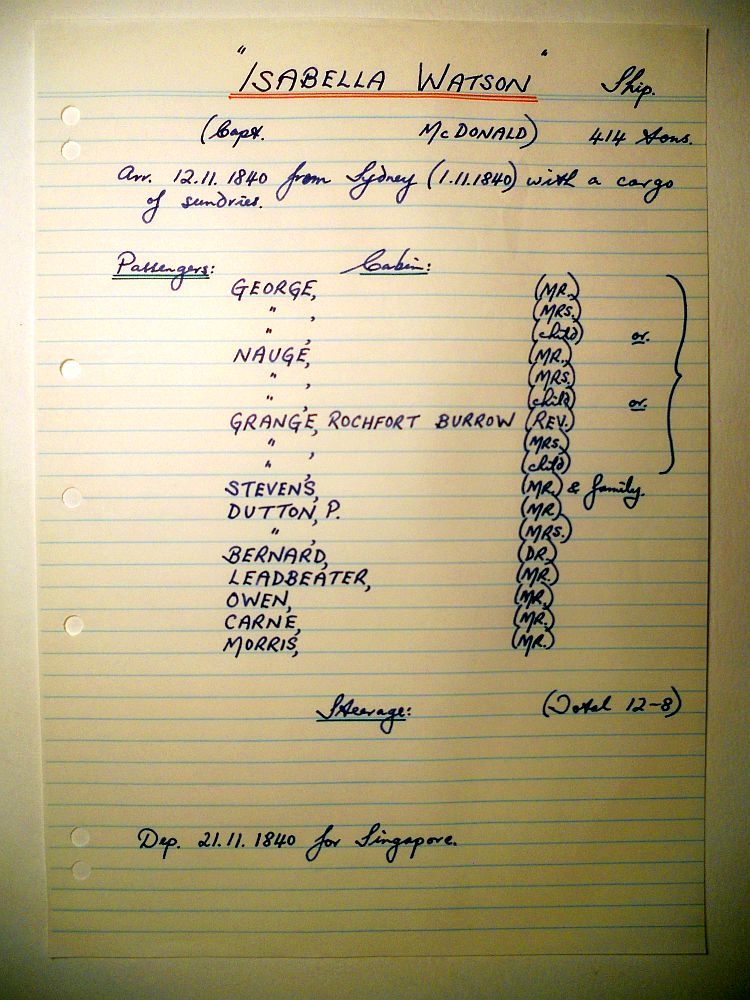 "ISABELLA WATSON" Ship.
(Capt. McDONALD) 414 tons.
Arr. 12.11.1840 from Sydney (1.11.1840) with a cargo
of sundries.
Passengers: Cabin:
GEORGE, (MR.)
" , (MRS.)
" , (child) or.
NAUGE, (MR.)
" , (MRS.)
" , (child) or.
GRANGE, ROCHFORT BURROW (REV.)
" , (MRS.)
" , (child)
STEVENS, (MR.) & family.
DUTTON, P. (MR.)
" , (MRS.)
BERNARD, (DR.)
LEADBEATER, (MR.)
OWEN, (MR.)
CARNE, (MR.)
MORRIS, (MR.)
Steerage: (Total 12-8)
Dep. 21.11.1840 for Singapore.